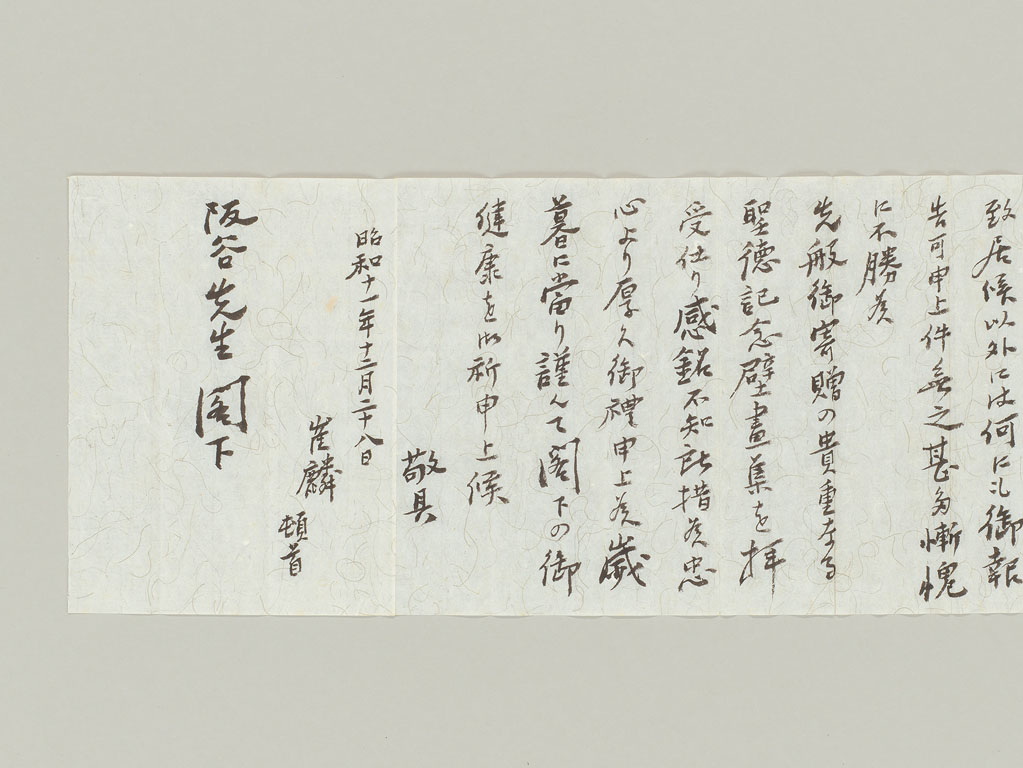 致居候以外には何にも御報
告可申上件無之甚多慚愧
に不勝候
先般御寄贈の貴重なる
聖德記念壁畫集を拝
受仕り感銘不知所措候忠
心より厚く御禮申上候歲
暮に當り謹んで閣下の御
健康を御祈申上候
敬具
昭和十一年十二月二十八日
崔麟
頓首
阪谷先生閣下